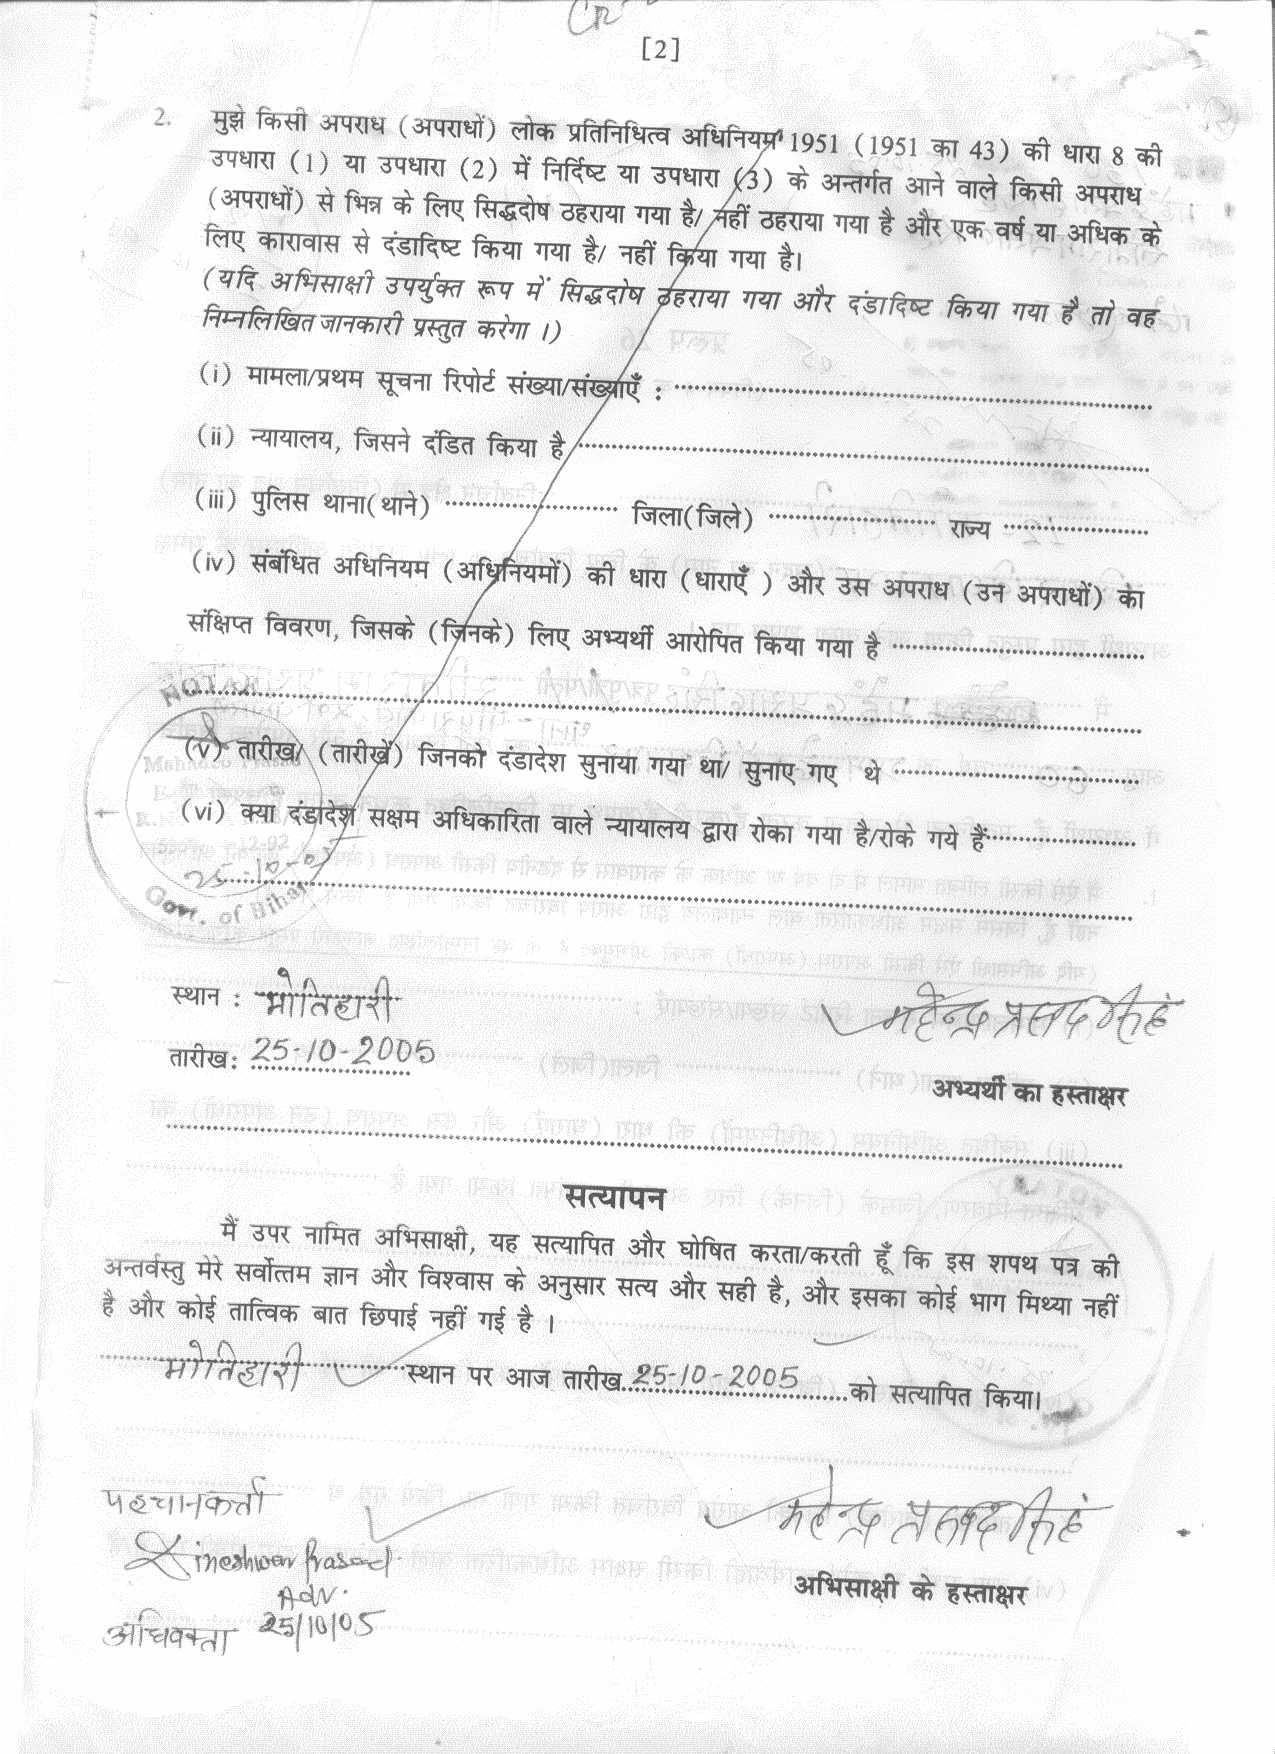 [2]
2. मुझे किसी अपराध (अपराधों) लोक प्रतिनिधित्व अधिनियम 1951 (1951 का 43) की धारा 8 की
उपधारा (1) या उपधारा (2) में निर्दिष्ट या उपधारा (3) के अन्तर्गत आने वाले किसी अपराध
(अपराधों) से भिन्न के लिए सिद्धदोष ठहराया गया है/ नहीं ठहराया गया है और एक वर्ष या अधिक के
लिए कारावास से दंडादिष्ट किया गया है/ नहीं किया गया है।
(यदि अभिसाक्षी उपर्युक्त रूप में सिद्धदोष ठहराया गया और दंडादिष्ट किया गया है तो वह
निम्नलिखित जानकारी प्रस्तुत करेगा ।)
(i) मामला/प्रथम सूचना रिपोर्ट संख्या/संख्याएँ :
(ii) न्यायालय, जिसने दंडित किया है
(iii) पुलिस थाना(थाने) जिला(जिले) राज्य
(iv) संबंधित अधिनियम (अधिनियमों) की धारा (धाराएँ ) और उस अपराध (उन अपराधों) का
संक्षिप्त विवरण, जिसके (जिनके) लिए अभ्यर्थी आरोपित किया गया है
NOTARY
(v) तारीख/ (तारीखें) जिनको दंडादेश सुनाया गया था/ सुनाए गए थे
(vi) क्या दंडादेश सक्षम अधिकारिता वाले न्यायालय द्वारा रोका गया है/रोके गये हैं
25-10-05
Govt. of Bihar
स्थान : मोतिहारी
महेन्द्र प्रसाद सिंह
तारीख: 25-10-2005
अभ्यर्थी का हस्ताक्षर
सत्यापन
मैं उपर नामित अभिसाक्षी, यह सत्यापित और घोषित करता/करती हूँ कि इस शपथ पत्र की
अन्तर्वस्तु मेरे सर्वोत्तम ज्ञान और विश्वास के अनुसार सत्य और सही है, और इसका कोई भाग मिथ्या नहीं
है और कोई तात्विक बात छिपाई नहीं गई है ।
मोतिहारी स्थान पर आज तारीख 25-10-2005 को सत्यापित किया।
पहचानकर्त्ता
महेन्द्र प्रसाद सिंह
Dineshwar Prasad
Adv.
अभिसाक्षी के हस्ताक्षर
25/10/05
अधिवक्ता